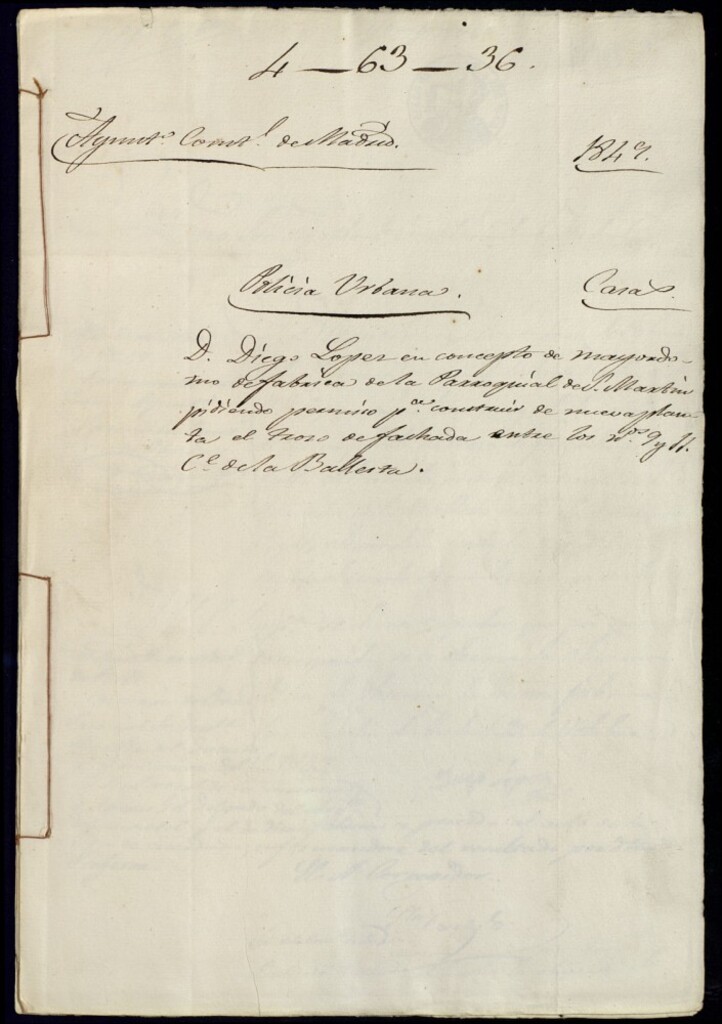 4—63—36.
Ayunt.º Const.l de Madrid.
1847.
Policia Urbana.
Casas.
D. Diego Lopez en concepto de mayordo-
mo de fabrica de la Parroquial de S. Martin
pidiendo permiso p.ª construir de nueva plan-
ta el trozo de fachada entre los n.os 9 y 11.
C.e de la Ballesta.